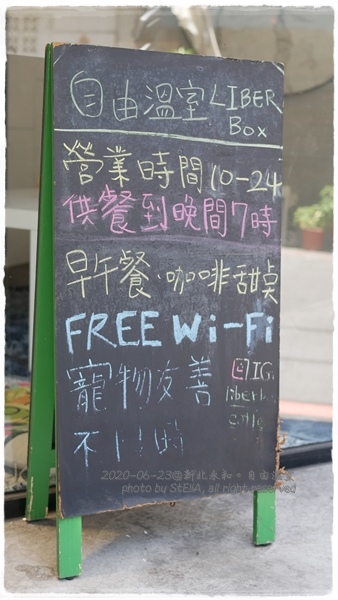 自由溫室 LIBER
Box
營業時間 10-24
供餐到晚間7時
早午餐·咖啡甜點
FREE Wi-Fi
寵物友善
IG
liber
不
2020-06-23@新北永和。自由溫室
photo by StEllA, all right reserved